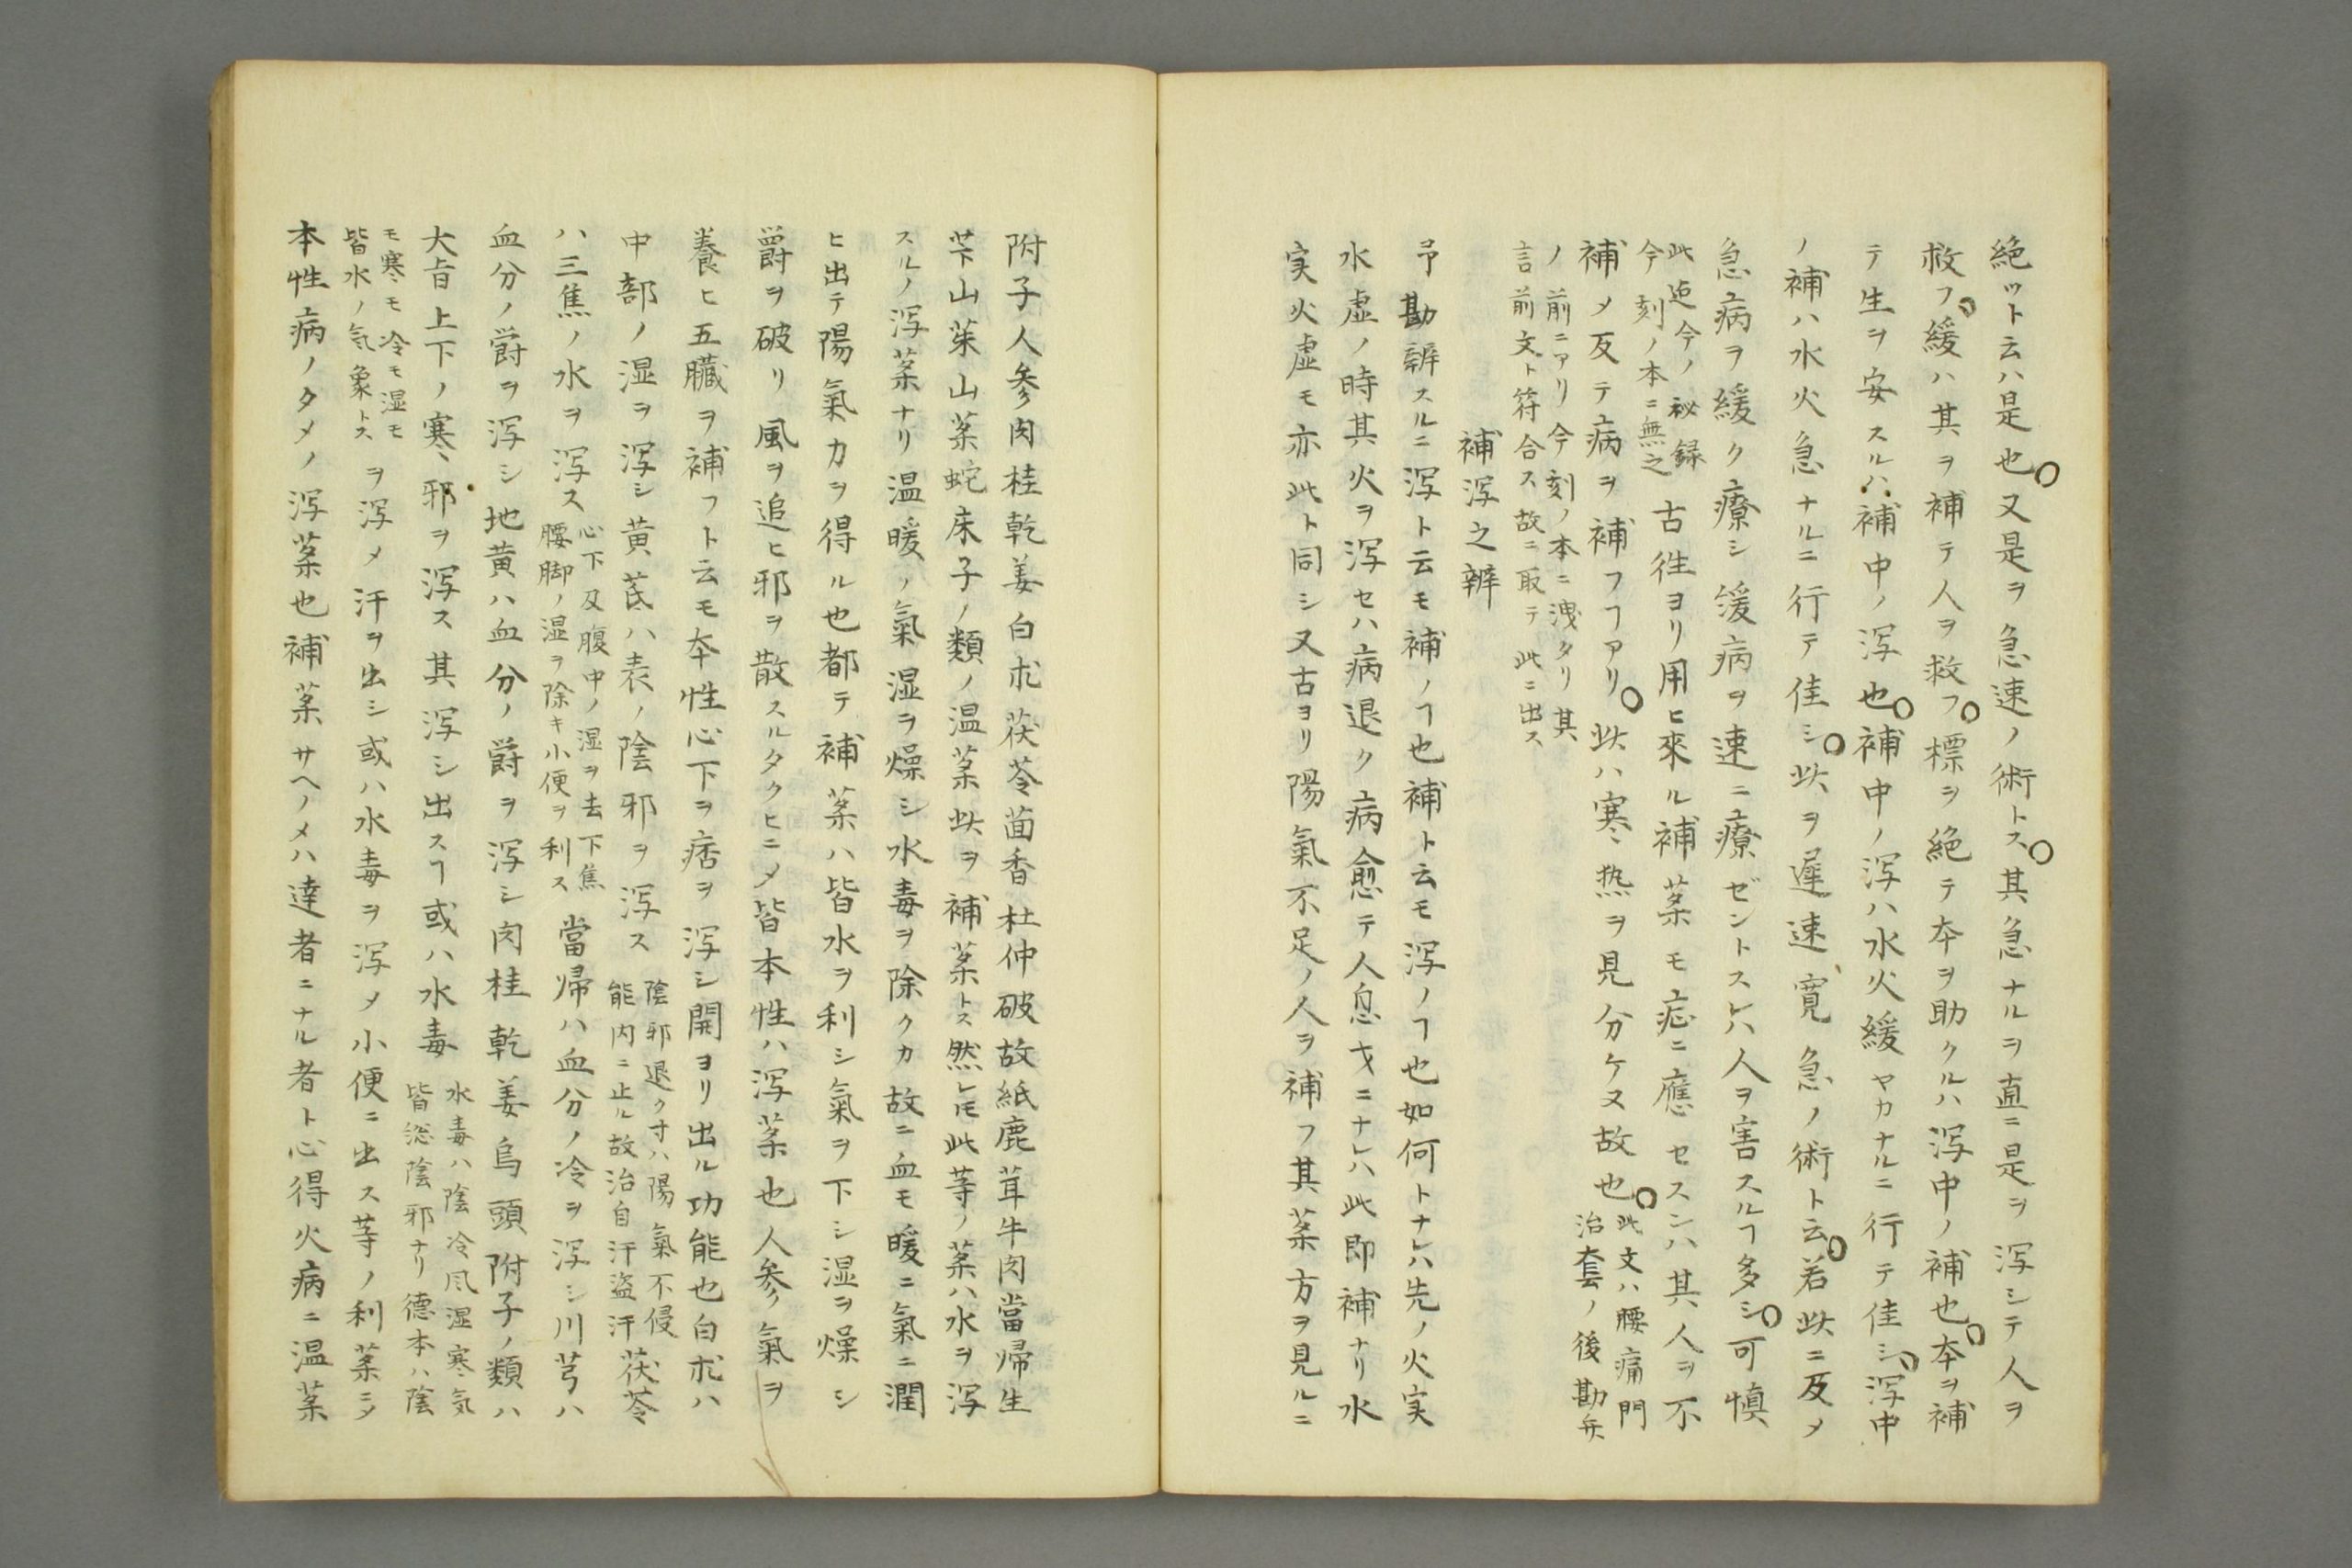 絶ット云ハ是也○又是ヲ急速ノ術トス○其急ナルヲ直ニ是ヲ泻シテ人ヲ
救フ○緩ハ其ヲ補テ人ヲ救フ○標ヲ絶テ夲ヲ助クルハ泻中ノ補也○夲ヲ補
テ生ヲ安スルハ補中ノ泻也○補中ノ泻ハ水火緩ヤカナルニ行テ佳シ○泻中
ノ補ハ水火急ナルニ行テ佳シ○此ヲ遅速寛急ノ術ト云○若此ニ反メ
急病ヲ緩ク療シ緩病ヲ速ニ療ゼントスレハ人ヲ害スルヿ多シ○可慎
此迄今ノ秘録
今刻ノ本ニ無之
古徃ヨリ用ヒ來ル補藥モ症ニ應セスンハ其人ヲ不
補メ反テ病ヲ補フヿアリ○此ハ寒熱ヲ見分ケヌ故也○
此文ハ腰痛門
治套ノ後勘弁
ノ前ニアリ今刻ノ本ニ洩タリ其
言前文ト符合ス故ニ取テ此ニ出ス
補泻之辨
予勘辨スルニ泻ト云モ補ノヿ也補ト云モ泻ノヿ也如何トナレハ先ノ火実
水虚ノ時其火ヲ泻セハ病退ク病愈テ人息才ニナレハ此即補ナリ水
実火虚モ亦此ト同シ又古ヨリ陽氣不足ノ人ヲ補フ其藥方ヲ見ルニ
附子人参肉桂乾姜白朮茯苓茴香杜仲破故紙鹿茸牛肉當帰生
芐山茱山藥蛇床子ノ類ノ温藥此ヲ補藥トス然レ𪜈此等ノ藥ハ水ヲ泻
スルノ泻藥ナリ温暖ノ氣湿ヲ燥シ水毒ヲ除クカ故ニ血モ暖ニ氣ニ潤
ヒ出テ陽氣力ヲ得ル也都テ補藥ハ皆水ヲ利シ氣ヲ下シ湿ヲ燥シ
欝ヲ破リ風ヲ追ヒ邪ヲ散スルタクヒニメ皆本性ハ泻藥也人参ノ氣ヲ
養ヒ五臓ヲ補フト云モ夲性心下ヲ痞ヲ泻シ開ヨリ出ル功能也白朮ハ
中部ノ湿ヲ泻シ黄芪ハ表ノ陰邪ヲ泻ス
陰邪退ク寸ハ陽氣不侵
能内ニ止ル故治自汗盗汗
茯苓
ハ三焦ノ水ヲ泻ス
心下及腹中ノ湿ヲ去下焦
腰脚ノ湿ヲ除キ小便ヲ利ス
當帰ハ血分ノ冷ヲ泻シ川芎ハ
血分ノ欝ヲ泻シ地黄ハ血分ノ欝ヲ泻シ肉桂乾姜烏頭附子ノ類ハ
大㫖上下ノ寒邪ヲ泻ス其泻シ出スヿ或ハ水毒
水毒ハ陰冷風湿寒気
皆総陰邪ナリ德本ハ陰
モ寒モ冷モ湿モ
皆水ノ気象トス
ヲ泻メ汗ヲ出シ或ハ水毒ヲ泻メ小便ニ出ス等ノ利藥ニメ
本性病ノタメノ泻藥也補藥サヘノメハ達者ニナル者ト心得火病ニ温藥